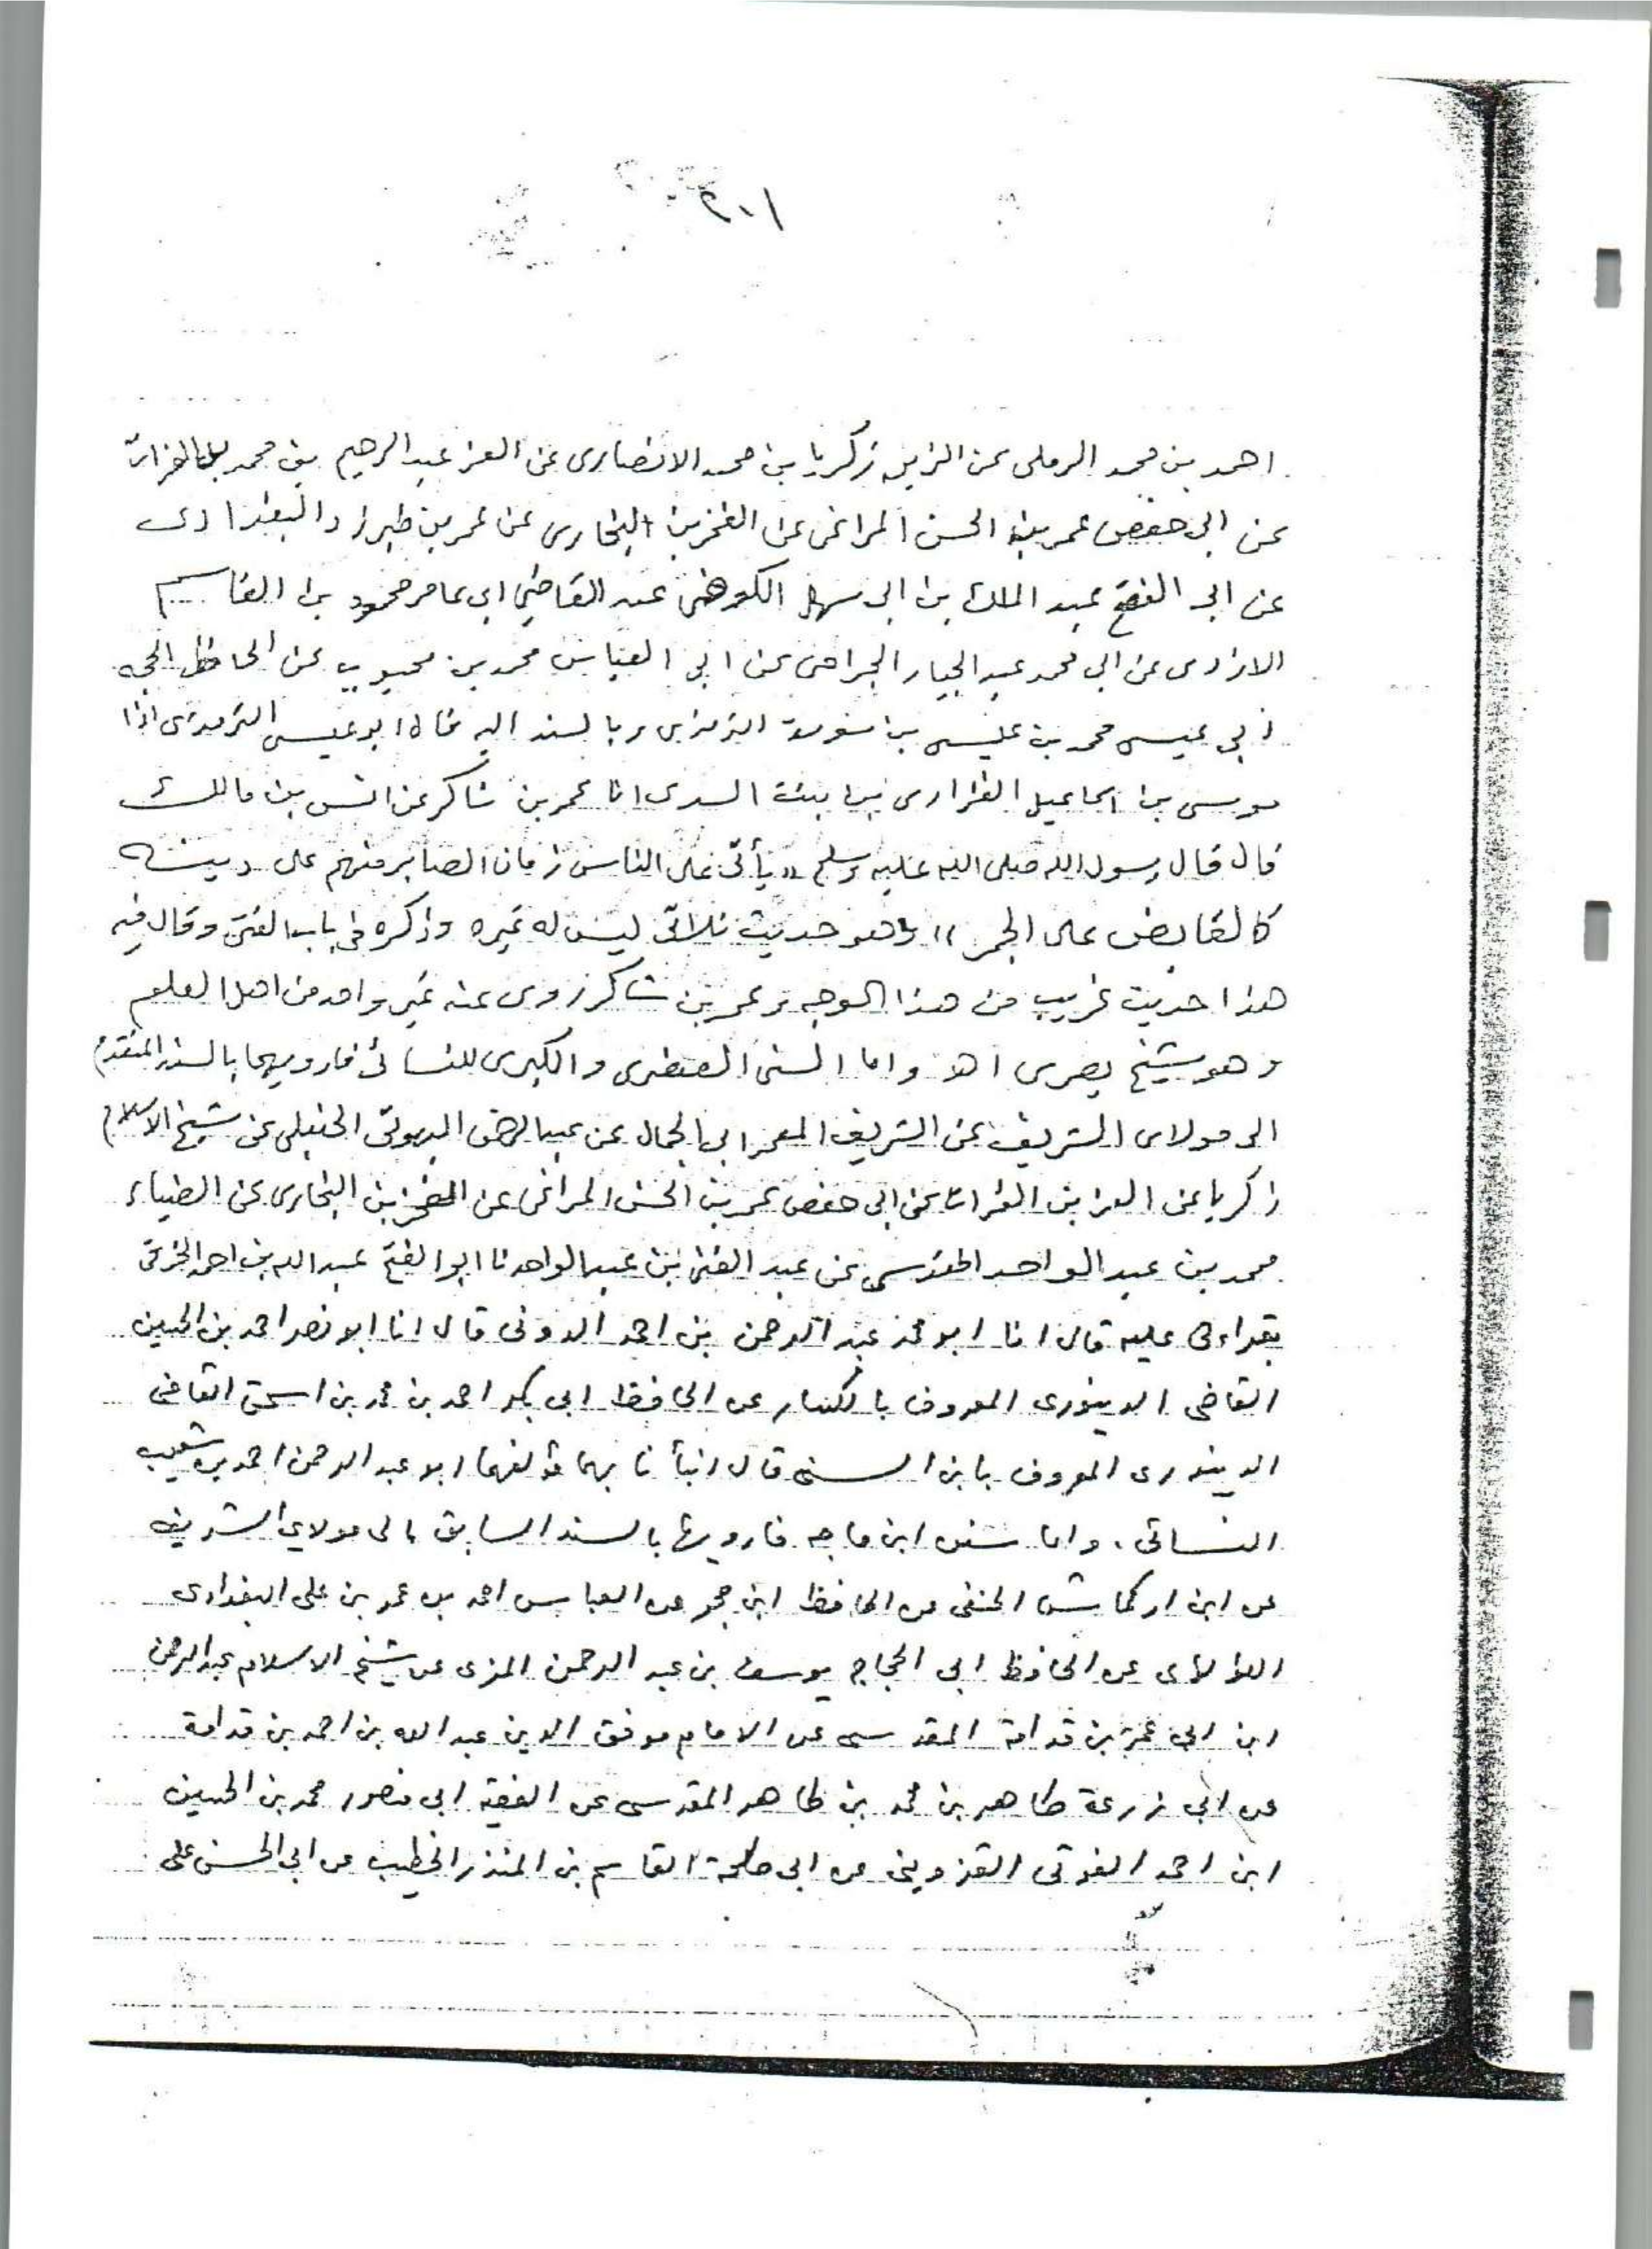 ٢٠١
احمد بن محمد الرملى عن الزين زكريا بن محمد الانصارى عن العز عبد الرحيم بن محمد الفرات
عن ابى حفص عمر بن الحسن المراغى عن الفخر بن البخارى عن عمر بن طبرزد البغدادى
عن ابى الفتح عبد الملك بن ابى سهل الكروخى عن القاضى ابى عامر محمود بن القاسم
الازدى عن ابى محمد عبد الجبار الجراحى عن ابى العباس محمد بن محبوب عن الحافظ الحجه
ابى عيسى محمد بن عيسى بن سورة الترمذى وبالسند اليه قال ابو عيسى الترمذى انا
موسى بن اسماعيل الفزارى بن بنت السدى انا عمر بن شاكر عن انس بن مالك
قال قال رسول الله صلى الله عليه وسلم «يأتى على الناس زمان الصابر منهم على دينه
كالقابض على الجمر» وهو حديث ثلاثى ليس له غيره وذكره فى باب الفتن وقال فيه
هذا حديث غريب من هذا الوجه وعمر بن شاكر روى عنه غير واحد من اهل العلم
وهو شيخ بصرى اهـ واما السنن الصغرى والكبرى للنسائى فارويهما بالسند المتقدم
الى مولاى الشريف عن الشريف المعمر ابى الجمال عن عبد الرحمن البهوتى الحنبلى عن شيخ الاسلام
زكريا عن العز بن الفرات عن ابى حفص عمر بن الحسن المراغى عن الفخر بن البخارى عن الضياء
محمد بن عبد الواحد المقدسى عن عبد الغنى بن عبد الواحد نا ابو الفتح عبد الله بن احمد الخرقى
بقراءتى عليه قال انا ابو محمد عبد الرحمن بن احمد الدونى قال انا ابو نصر احمد بن الحسين
القاضى الدينورى المعروف بالكسار عن الحافظ ابى بكر احمد بن محمد بن اسحق القاضى
الدينورى المعروف بابن السنى قال انبأنا بهما مؤلفهما ابو عبد الرحمن احمد بن شعيب
النسائى. واما سنن ابن ماجه فارويها بالسند السابق الى مولاي الشريف
عن ابن اركماش الحنفى عن الحافظ ابن حجر عن العباس احمد بن عمر بن على البغدادى
اللؤلؤى عن الحافظ ابى الحجاج يوسف بن عبد الرحمن المزى عن شيخ الاسلام عبد الرحمن
ابن ابى عمر بن قدامة المقدسى عن الامام موفق الدين عبد الله بن احمد بن قدامة
عن ابي زرعة طاهر بن محمد بن طاهر المقدسى عن الفقيه ابى منصور محمد بن الحسين
ابن احمد القزوينى عن ابى طلحة القاسم بن المنذر الخطيب عن ابى الحسن على